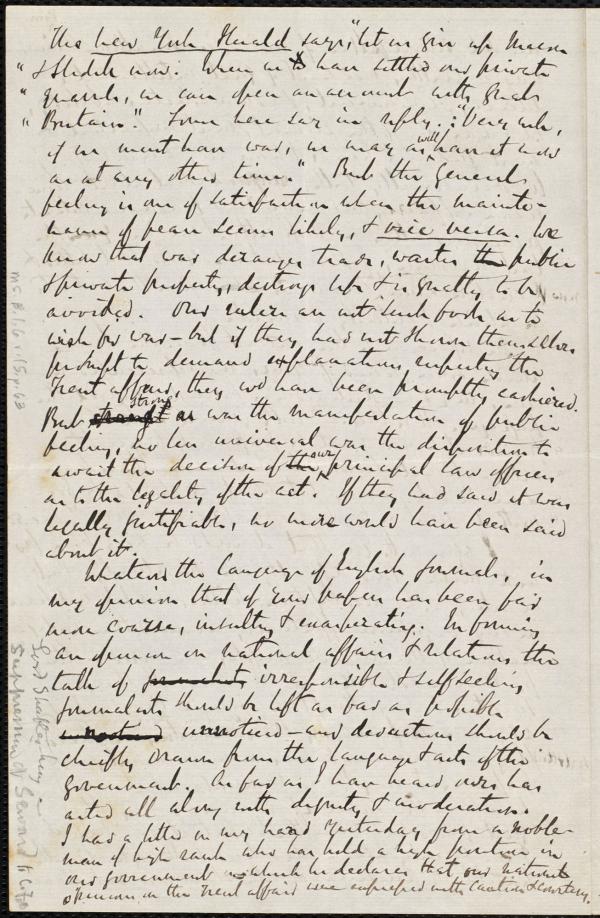 The New York Herald says, "let us give up Mason
" & Slidell now. When we have settled our private
" quarrels, we can open an account with Great
" Britain". Some here say in reply: "Very well,
if we must have war, we may as well have it now
as at any other time." But the general
feeling is one of satisfaction when the mainte-
nance of peace seems likely, & vice versa. We
know that war deranges trade, wastes public
& private property, destroys life & is greatly to be
avoided. Our rulers are not such fools as to
wish for war – but if they had not shown themselves
prompt to demand explanations respecting the
Trent affair, they wd have been promptly cashiered.
But strong as was the manifestation of public
feeling, no less universal was the disposition to
await the decision of our principal law officers
as to the legality of the act. If they had said it was
legally justifiable, no more would have been said
about it.
Whatever the language of English journals, in
my opinion that of your papers has been far
more coarse, insulting & exasperating. In forming
an opinion on national affairs & relations the
talk of irresponsible & self seeking
journalists should be left as far as possible
unnoticed – and deductions should be
chiefly drawn from the language & acts of the
government. As far as I have heard ours has
acted all along with dignity & moderation.
I had a letter in my hand yesterday from a noble-
man of high rank who has held a high position in
our government in which he declares that our national
opinions on the Trent affair were expressed with caution & courtesy.
Lord Shaftesbury –
Seward